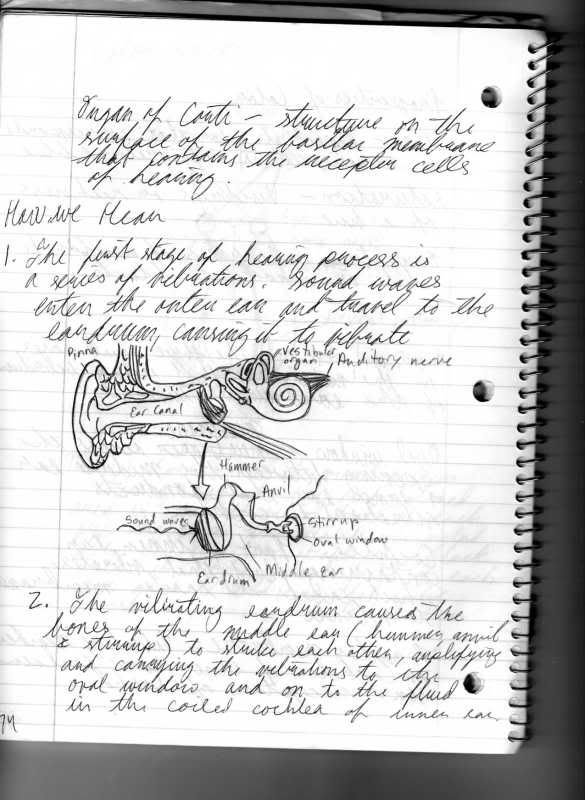 Organ of Corti – structure on the
surface of the basilar membrane
that contains the receptor cells
of hearing.
How we Hear
1. The first stage of hearing process is
a series of vibrations. Sound waves
enter the outer ear and travel to the
eardrum, causing it to vibrate
Pinna
Vestibular
organ
Auditory nerve
Ear Canal
Hammer
Anvil
Sound waves
Stirrup
oval window
Eardrum
Middle Ear
2. The vibrating eardrum causes the
bones of the middle ear (hammer, anvil
& stirrup) to strike each other, amplifying
and carrying the vibrations to the
oval window and on to the fluid
in the coiled cochlea of inner ear.
74